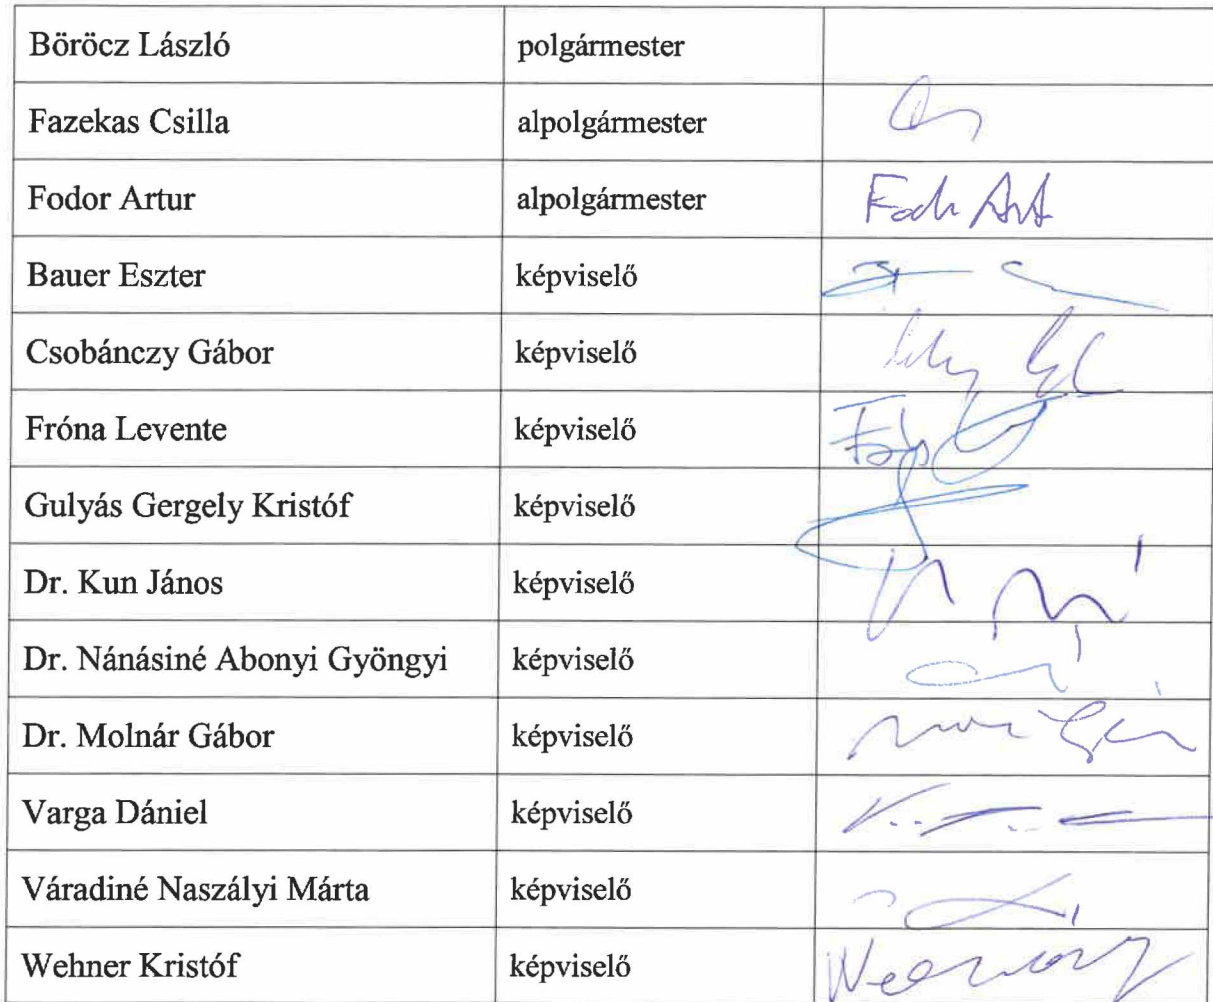 Böröcz László polgármester
Fazekas Csilla alpolgármester
Fodor Artur alpolgármester Fodr Art
Bauer Eszter képviselő
Csobánczy Gábor képviselő
Fróna Levente képviselő
Gulyás Gergely Kristóf képviselő
Dr. Kun János képviselő
Dr. Nánásiné Abonyi Gyöngyi képviselő
Dr. Molnár Gábor képviselő
Varga Dániel képviselő
Váradiné Naszályi Márta képviselő
Wehner Kristóf képviselő